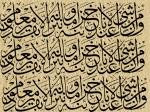 وإن من شيء إلا عندنا خزائنه وما ننزله إلا بقدر معلوم
وإن من شيء إلا عندنا خزائنه وما ننزله إلا بقدر معلوم
وإن من شيء إلا عندنا خزائنه وما ننزله إلا بقدر معلوم